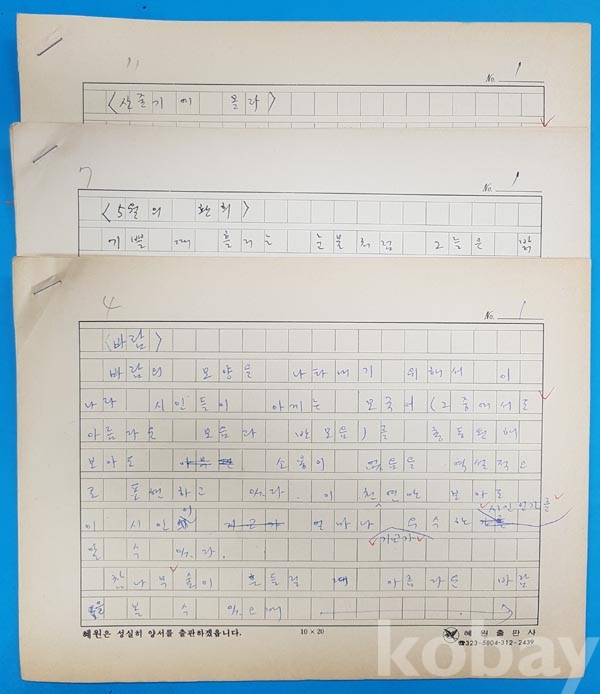 11
No. 1
<산줄기에 올라>
7
No. 1
<5월의 환희>
기쁠 때 흘리는 눈물처럼 그늘은 밝
4
No. 1
<바람>
바람의 모양을 나타내기 위해서 이
나라 시인들이 아끼는 모국어(그중에서도
아름다운 모음과 반모음)를 총동원해
보아도 소용이 없음을 역설적으
로 표현하고 있다. 이 한 연만 보아도
시인인가를
이 시인이 얼마나 우수한
기교가
알 수 있다.
참나무 숲이 흔들릴 때 아름다운 바람
을 볼 수 있으며
혜원은 성실히 양서를 출판하겠읍니다.
10 × 20
혜원출판사
☎323-5804·312-2439
kobay